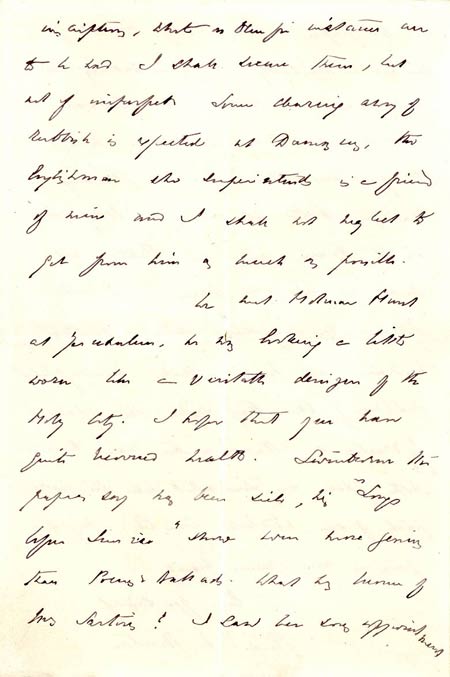 inscriptions, where a few instances are
to be had I shall secure them, but
not if imperfect. Some clearing away of
rubbish is expected at Damascus, the
Englishman who superintends is a friend
of mine and I shall not neglect to
get from him as much as possible.
We met Holman Hunt
at Jerusalem, he was looking a little
worn like a veritable denizen of the
Holy City. I hope that you have
quite recovered health. Swinburne the
papers say has been sick, his "Songs
before Sunrise" show even more genius
than Poems & Ballads. What has become of
Mrs Sartoris? I saw her sons appointment